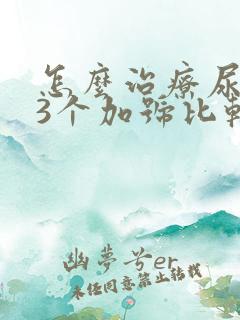 怎麼治療尿
3个加號比較
幽夢兮er
未经同意禁止转载